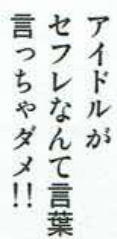 アイドルが
セフレなんて言葉
言っちゃダメ!!